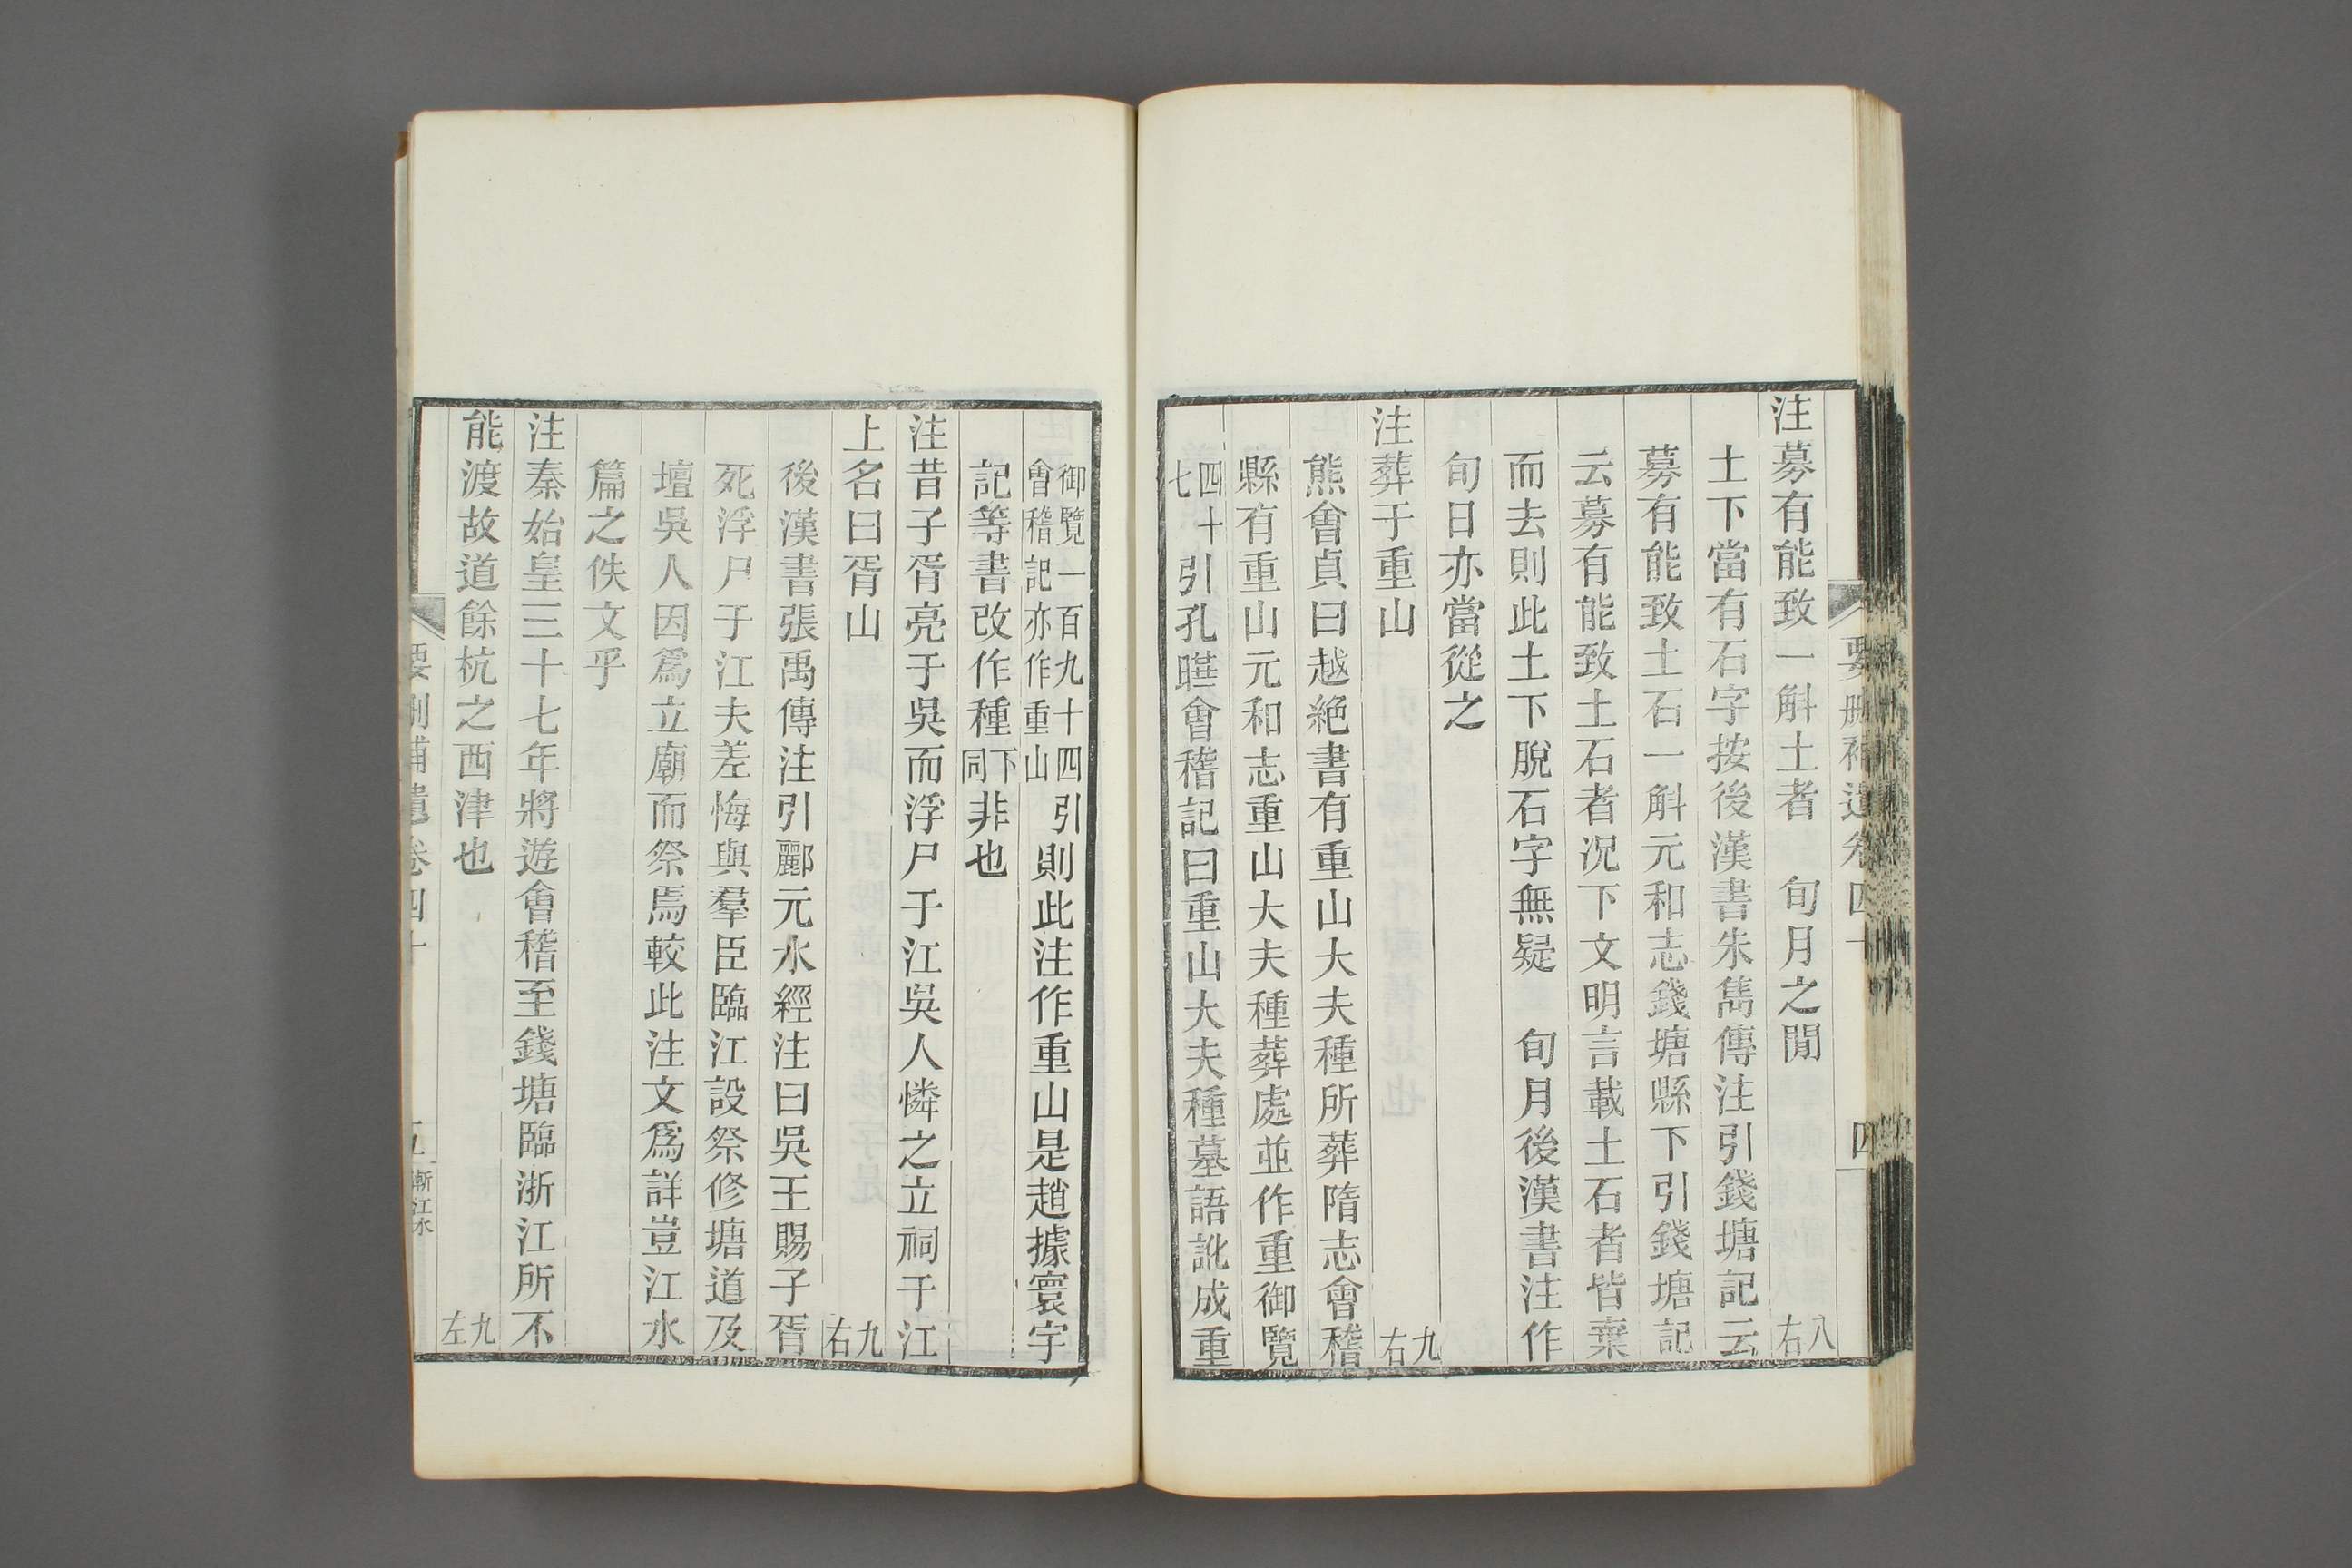 要刪補遺卷四十 四
注募有能致一斛土者 旬月之閒 八右
土下當有石字按後漢書朱雋傳注引錢塘記云
募有能致土石一斛元和志錢塘縣下引錢塘記
云募有能致土石者況下文明言載土石者皆棄
而去則此土下脫石字無疑 旬月後漢書注作
旬日亦當從之
注葬于重山 九右
熊會貞曰越絕書有重山大夫種所葬隋志會稽
縣有重山元和志重山大夫種葬處並作重御覽
四十七引孔曄會稽記曰重山大夫種墓語訛成重
御覽一百九十四引會稽記亦作重山則此注作重山是趙據寰宇
記等書改作種下同非也
注昔子胥亮于吳而浮尸于江吳人憐之立祠于江
上名曰胥山 九右
後漢書張禹傳注引酈元水經注曰吳王賜子胥
死浮尸于江夫差悔與羣臣臨江設祭修塘道及
壇吳人因爲立廟而祭焉較此注文爲詳豈江水
篇之佚文乎
注秦始皇三十七年將遊會稽至錢塘臨浙江所不
能渡故道餘杭之西津也 九左
要刪補遺卷四十 五 漸江水